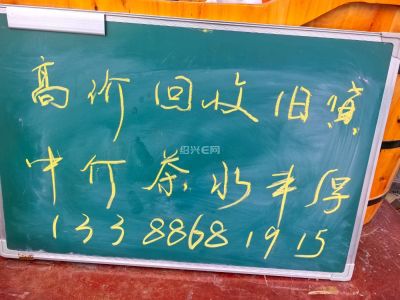 高价回收旧货
绍兴E网
中介茶水丰厚
13388681915